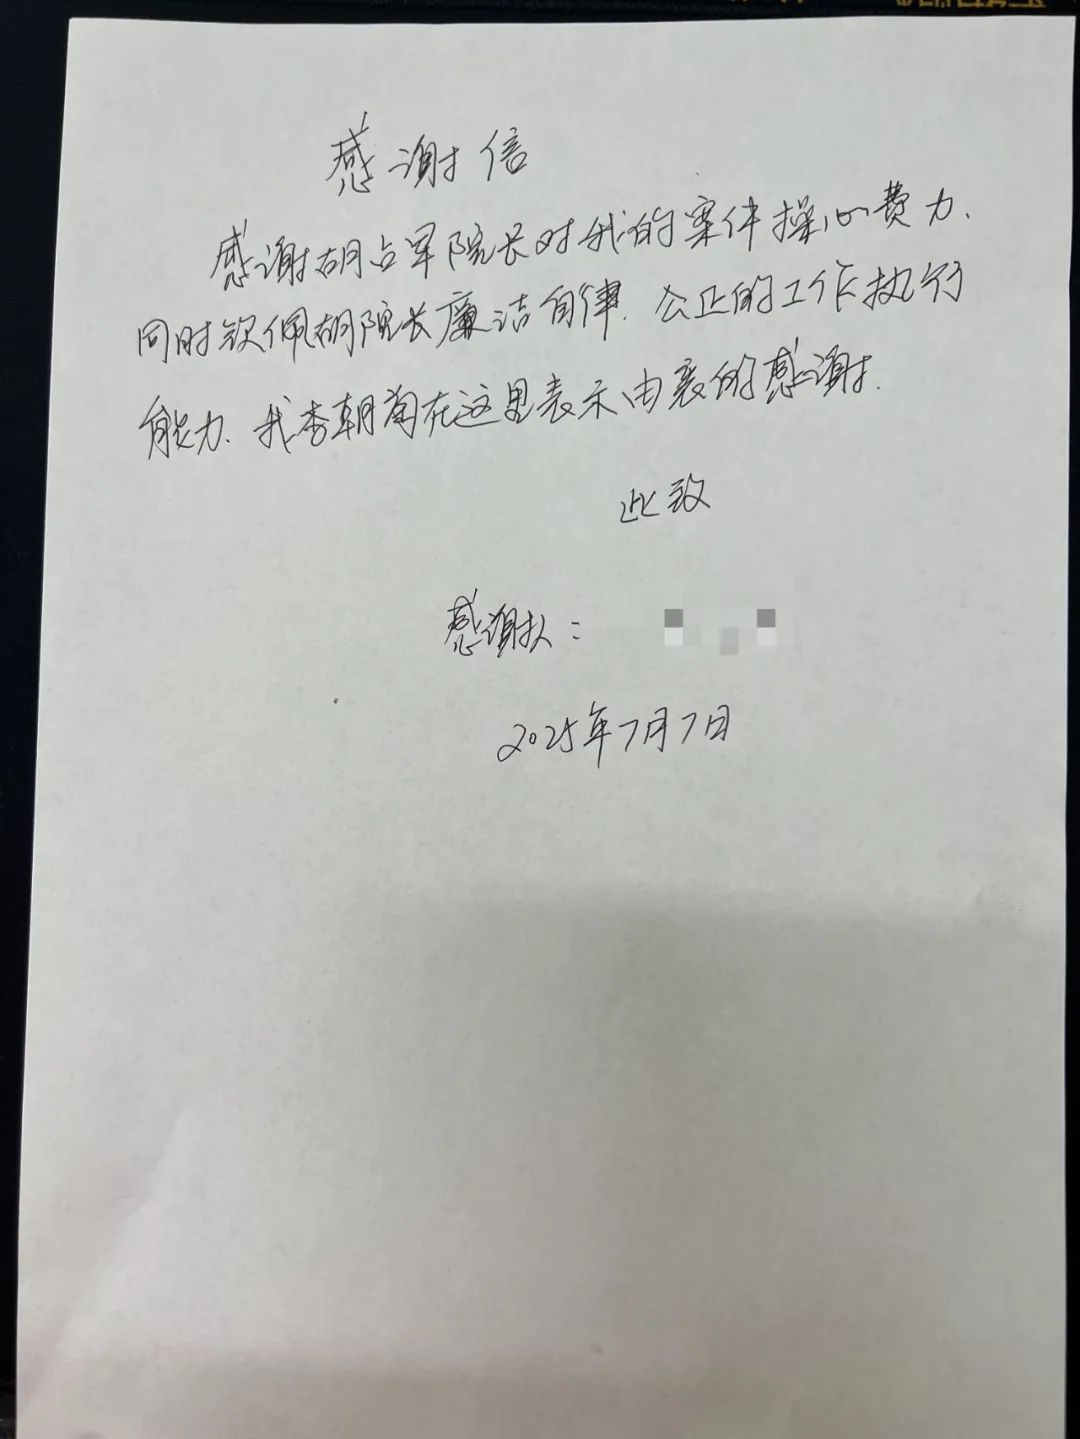 感谢信
感谢胡占军院长对我的案件操心费力.
同时钦佩胡院长廉洁自律.公正的工作执行
能力.我李朝菊在这里表示由衷的感谢.
此致
感谢人:
2025年7月7日